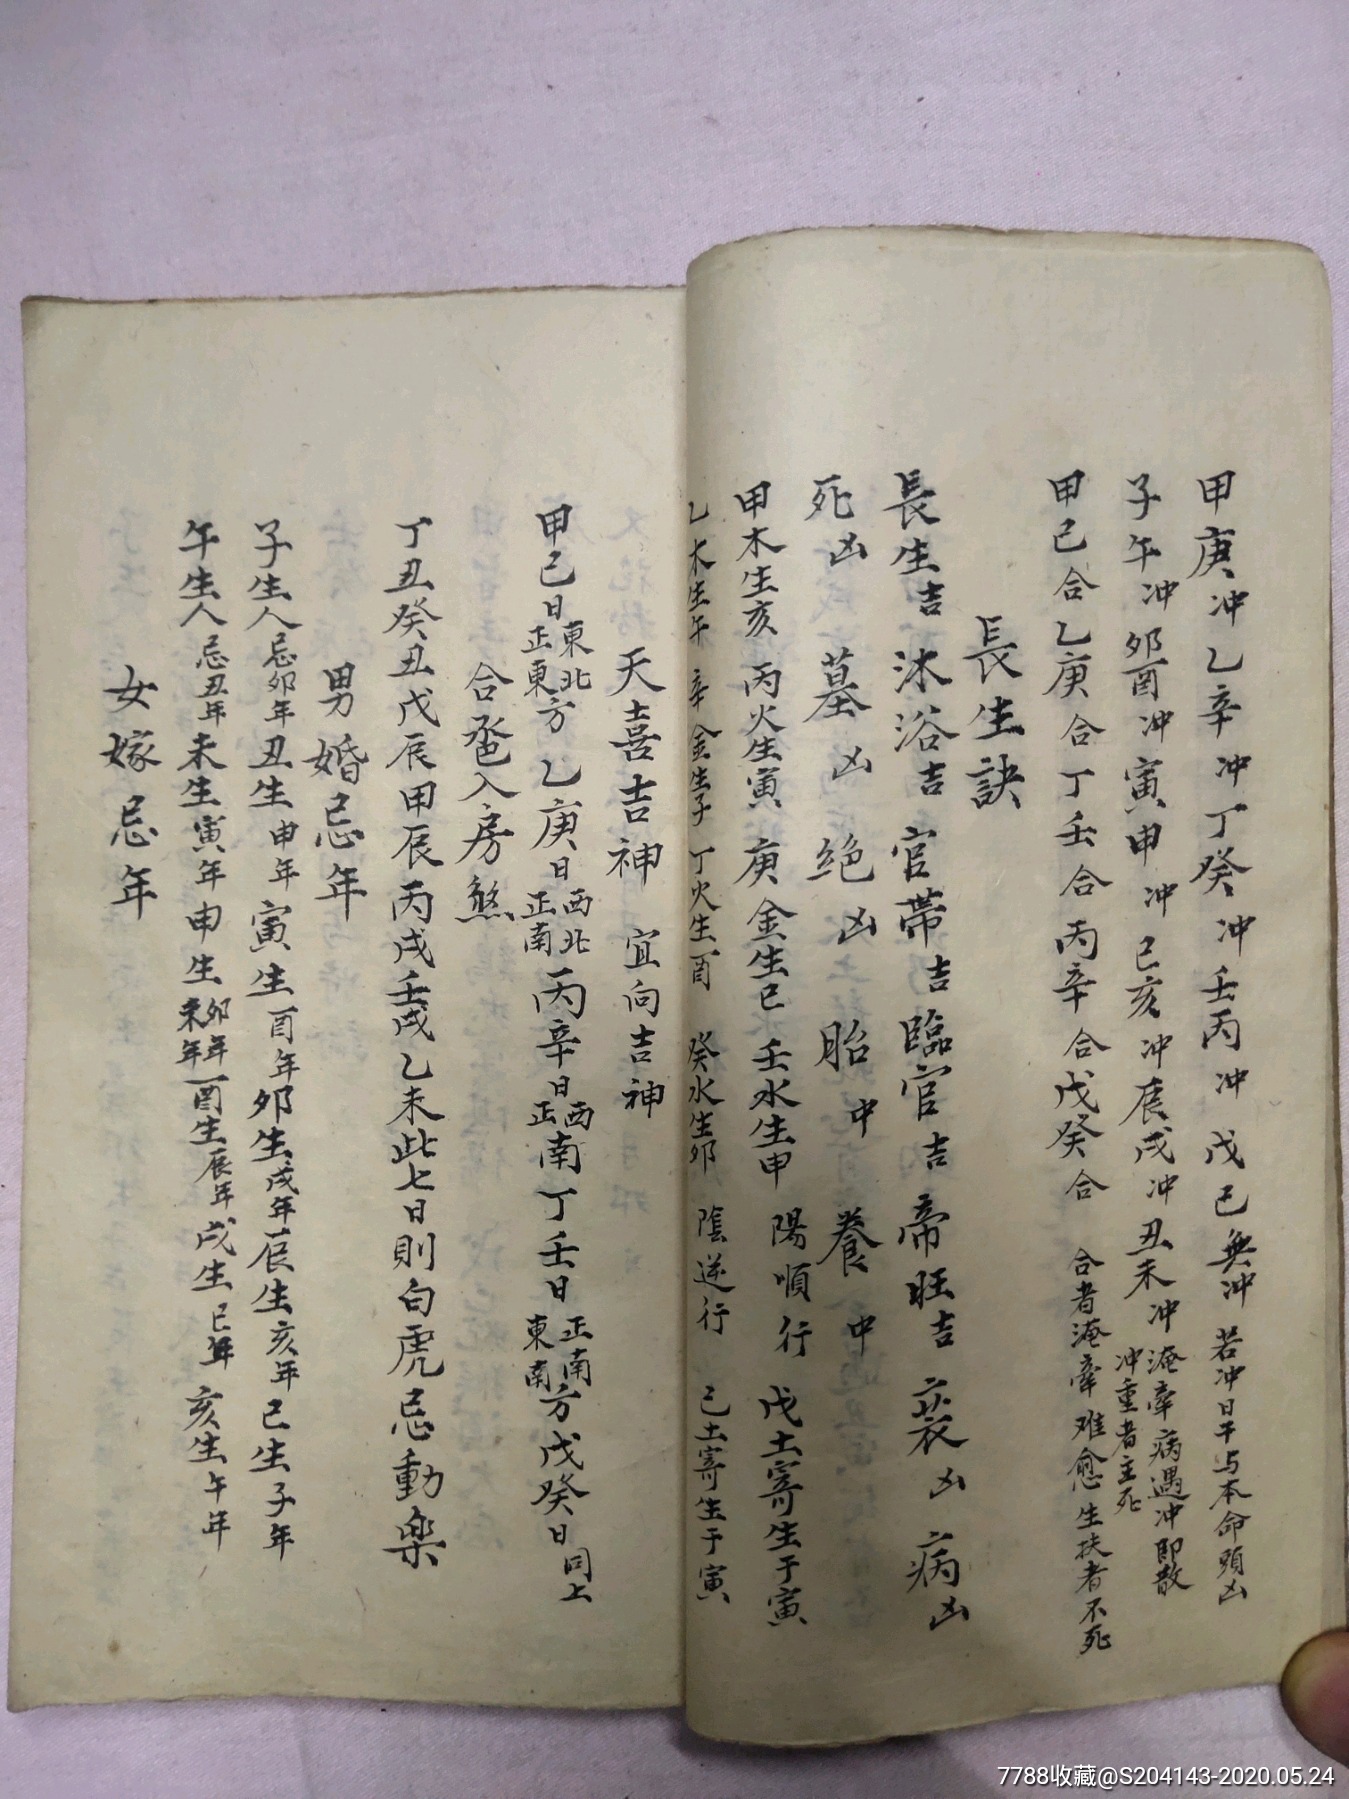 甲庚冲乙辛冲丁癸冲壬丙冲戊己無冲若冲日干与本命頭凶
子午冲卯酉冲寅申冲巳亥冲辰戌冲丑未冲淹牽病遇冲即散冲重者主死
甲己合乙庚合丁壬合丙辛合戊癸合合者淹牽难愈生扶者不死
長生訣
長生吉沐浴吉官帶吉臨官吉帝旺吉衰凶病凶
死凶墓凶绝凶胎中養中
甲木生亥丙火生寅庚金生巳壬水生申陽順行戊土寄生于寅
乙木生午辛金生子丁火生酉癸水生卯陰逆行己土寄生于寅
天喜吉神宜向吉神
甲己日東北正東方乙庚日西北正南丙辛日西正南丁壬日正南東南方戊癸日同上
合卺入房煞
丁丑癸丑戊辰甲辰丙戌壬戌乙未此七日則白虎忌動楽
男婚忌年
子生人忌卯年丑生申年寅生酉年卯生戌年辰生亥年巳生子年
午生人忌丑年未生寅年申生卯年未年酉生辰年戌生巳年亥生午年
女嫁忌年
7788收藏@S204143-2020.05.24